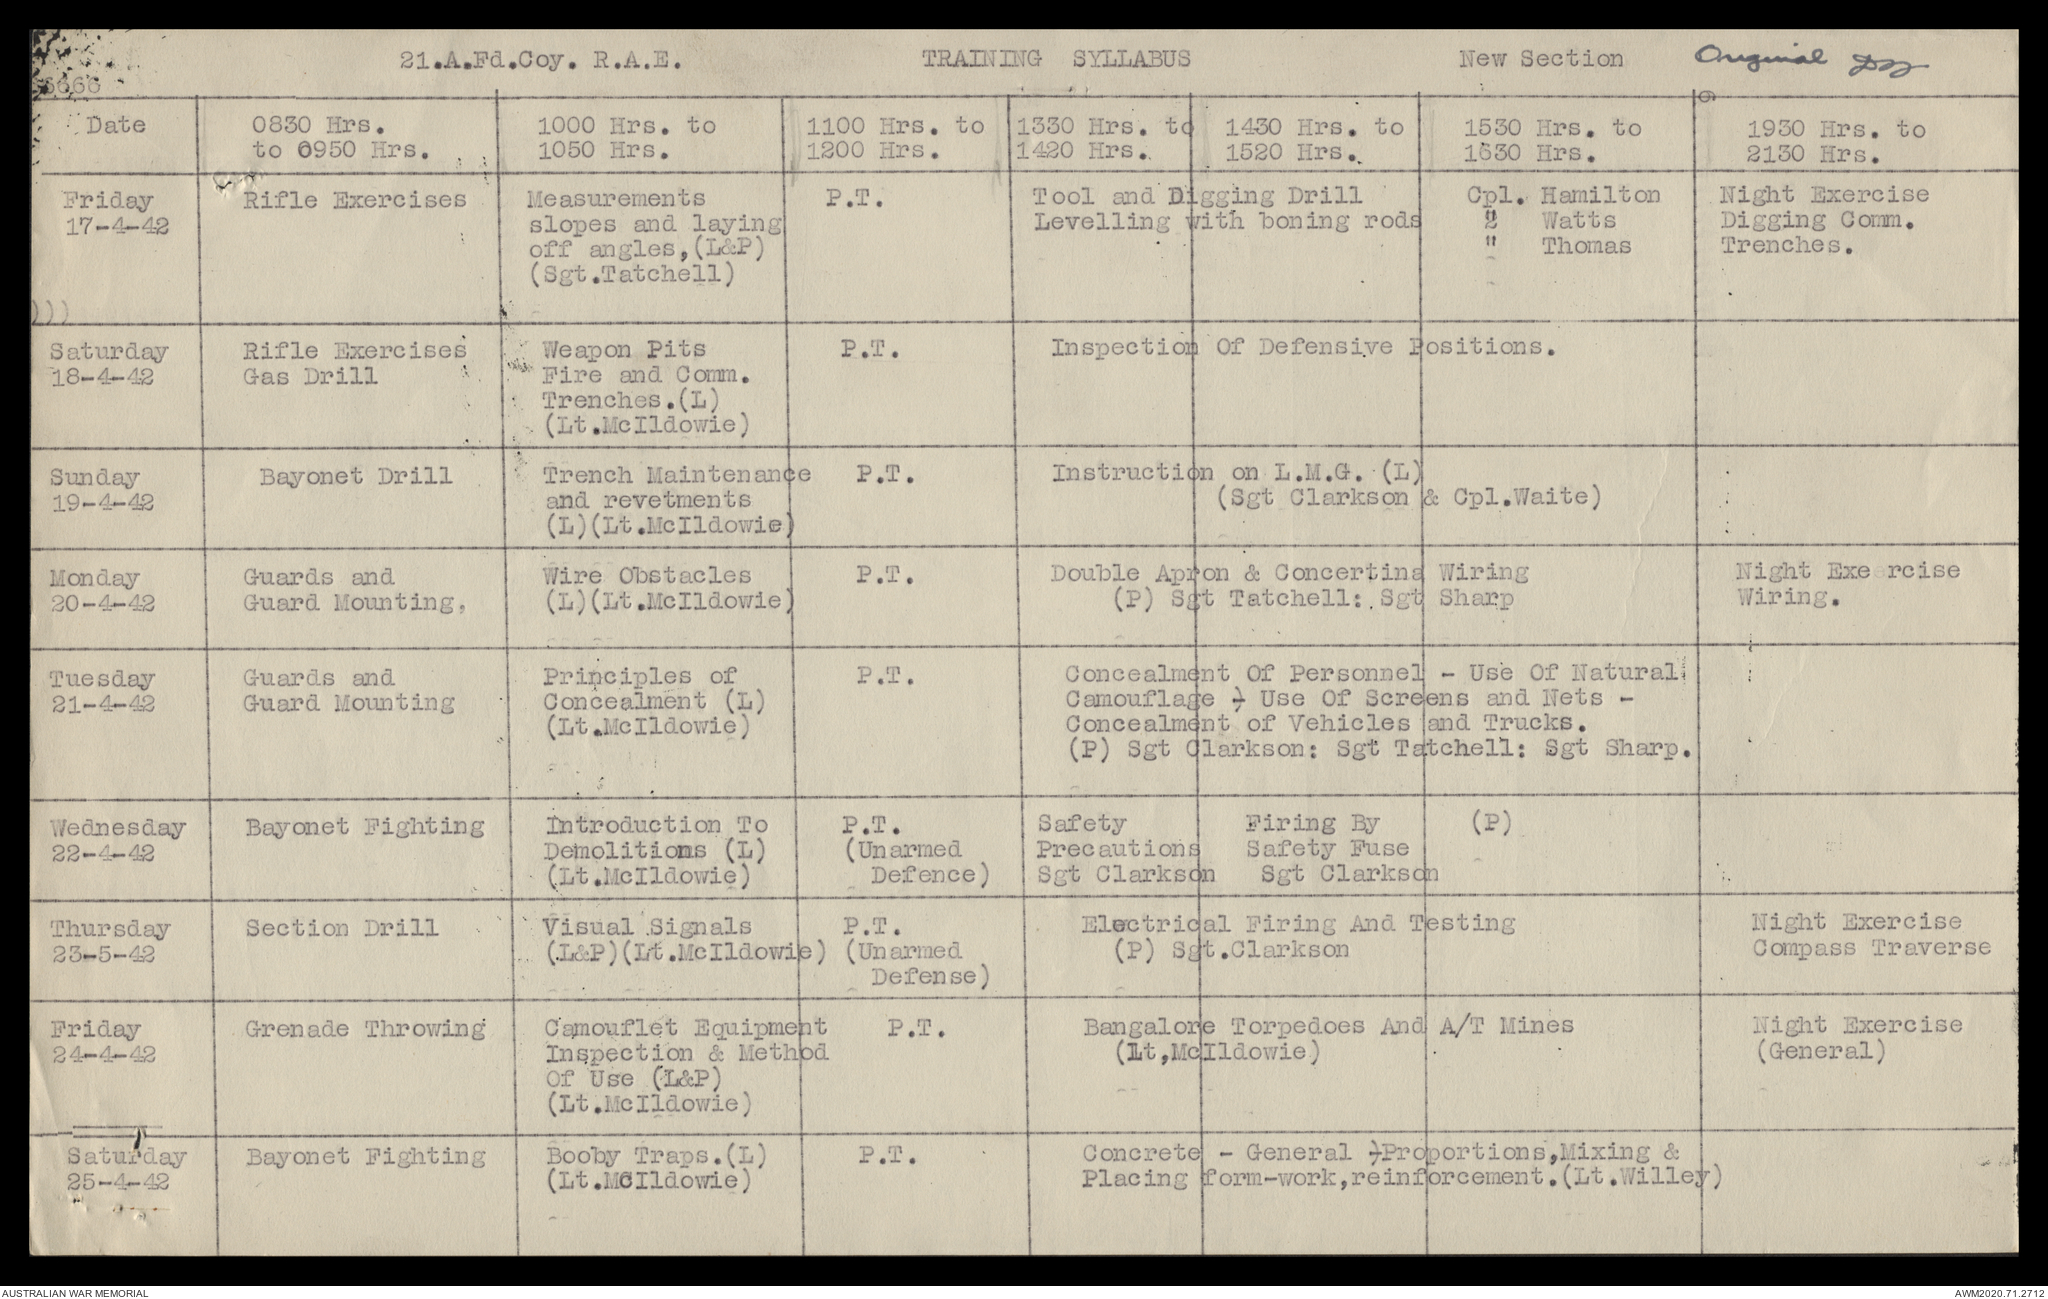 21.A.Fd.Coy. R.A.E. TRAINING SYLLABUS New Section Original
Date 0830 Hrs. 1000 Hrs. to 1100 Hrs. to 1330 Hrs. to 1430 Hrs. to 1530 Hrs. to 1930 Hrs. to
to 0950 Hrs. 1050 Hrs. 1200 Hrs. 1420 Hrs. 1520 Hrs. 1630 Hrs. 2130 Hrs.
Friday Rifle Exercises Measurements P.T. Tool and Digging Drill Cpl. Hamilton Night Exercise
17-4-42 slopes and laying Levelling with boning rods " Watts Digging Comm.
off angles,(L&P) " Thomas Trenches.
(Sgt.Tatchell)
Saturday Rifle Exercises Weapon Pits P.T. Inspection Of Defensive Positions.
18-4-42 Gas Drill Fire and Comm.
Trenches.(L)
(Lt.McIldowie)
Sunday Bayonet Drill Trench Maintenance P.T. Instruction on L.M.G. (L)
19-4-42 and revetments (Sgt Clarkson & Cpl.Waite)
(L)(Lt.McIldowie)
Monday Guards and Wire Obstacles P.T. Double Apron & Concertina Wiring Night Exercise
20-4-42 Guard Mounting. (L)(Lt.McIldowie) (P) Sgt Tatchell: Sgt Sharp Wiring.
Tuesday Guards and Principles of P.T. Concealment Of Personnel - Use Of Natural
21-4-42 Guard Mounting Concealment (L) Camouflage - Use Of Screens and Nets -
(Lt.McIldowie) Concealment of Vehicles and Trucks.
(P) Sgt Clarkson: Sgt Tatchell: Sgt Sharp.
Wednesday Bayonet Fighting Introduction To P.T. Safety Firing By (P)
22-4-42 Demolitions (L) (Unarmed Precautions Safety Fuse
(Lt.McIldowie) Defence) Sgt Clarkson Sgt Clarkson
Thursday Section Drill Visual Signals P.T. Electrical Firing And Testing Night Exercise
23-5-42 (L&P)(Lt.McIldowie) (Unarmed (P) Sgt.Clarkson Compass Traverse
Defense)
Friday Grenade Throwing Camouflet Equipment P.T. Bangalore Torpedoes And A/T Mines Night Exercise
24-4-42 Inspection & Method (Lt,McIldowie) (General)
Of Use (L&P)
(Lt.McIldowie)
Saturday Bayonet Fighting Booby Traps.(L) P.T. Concrete - General -Proportions,Mixing &
25-4-42 (Lt.MCIldowie) Placing form-work,reinforcement.(Lt.Willey)
AUSTRALIAN WAR MEMORIAL AWM2020.71.2712